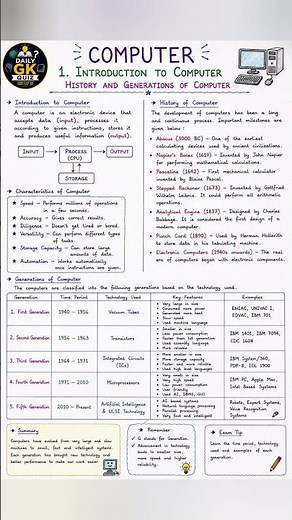 DAILY
GK
QUIZ
COMPUTER
1. INTRODUCTION TO COMPUTER
HISTORY AND GENERATIONS OF COMPUTER
→ Introduction to Computer
A computer is an electronic device that
accepts data (input), processes it
according to given instructions, stores it
and produces useful information (output).
INPUT → PROCESS (CPU) → OUTPUT
STORAGE
→ Characteristics of Computer
★ Speed – Performs millions of operations
in a few seconds.
★ Accuracy – Gives correct results.
★ Diligence – Doesn't get tired or bored.
★ Versatility – Can perform different
types of tasks.
★ Storage Capacity – Can store large
amounts of data.
★ Automation – Works automatically
once instructions are given.
→ History of Computer
The development of computers has been a long
and continuous process. Important milestones are
given below :
• Abacus (3000 BC) – One of the earliest
calculating devices used by ancient civilizations.
• Napier's Bones (1617) – Invented by John Napier
for performing mathematical calculations.
• Pascaline (1642) – First mechanical calculator
invented by Blaise Pascal.
• Stepped Reckoner (1673) – Invented by Gottfried
Wilhelm Leibniz. It could perform all arithmetic
operations.
• Analytical Engine (1837) – Designed by Charles
Babbage. It is considered the first design of a
modern computer.
• Punch Card (1890) – Used by Herman Hollerith
to store data in his tabulating machine.
• Electronic Computers (1940s onwards) – The real
era of computers began with electronic components.
→ Generations of Computer
The computers are classified into the following generations based on the technology used.
Generation Time Period Technology Used Key Features Examples
1. First Generation 1940 – 1956 Vacuum Tubes
• Very large in size
• Consumed more power
• Generated more heat
• Slow speed
• Used machine language
ENIAC, UNIVAC I,
EDVAC, IBM 701
2. Second Generation 1956 – 1963 Transistors
• Smaller in size
• Low power consumption
• Faster than 1st generation
• Used assembly language
• More reliable
IBM 1401, IBM 7094,
CDC 1604
3. Third Generation 1964 – 1971 Integrated Circuits (ICs)
• More smaller in size
• More storage capacity
• Faster and more reliable
• Used high level languages
IBM System/360,
PDP-8, ICL 1900
4. Fourth Generation 1971 – 2010 Microprocessors
• Very small in size
• Very high speed
• Low power consumption
• User friendly
• Used AI, DBMS, GUI
IBM PC, Apple Mac,
Intel Based Systems
5. Fifth Generation 2010 – Present Artificial Intelligence & ULSI Technology
• AI based systems
• Natural language processing
• Parallel processing
• Very fast and intelligent
Robots, Expert Systems,
Voice Recognition
Systems
→ Summary
Computers have evolved from very large and slow
machines to small, fast and intelligent systems.
Each generation has brought new technology and
better performance to make our work easier.
Remember
✓ G stands for Generation.
Advancement in technology
leads to smaller size,
more speed and higher
reliability.
Exam Tip
Learn the time period, technology
used and examples of each
generation.